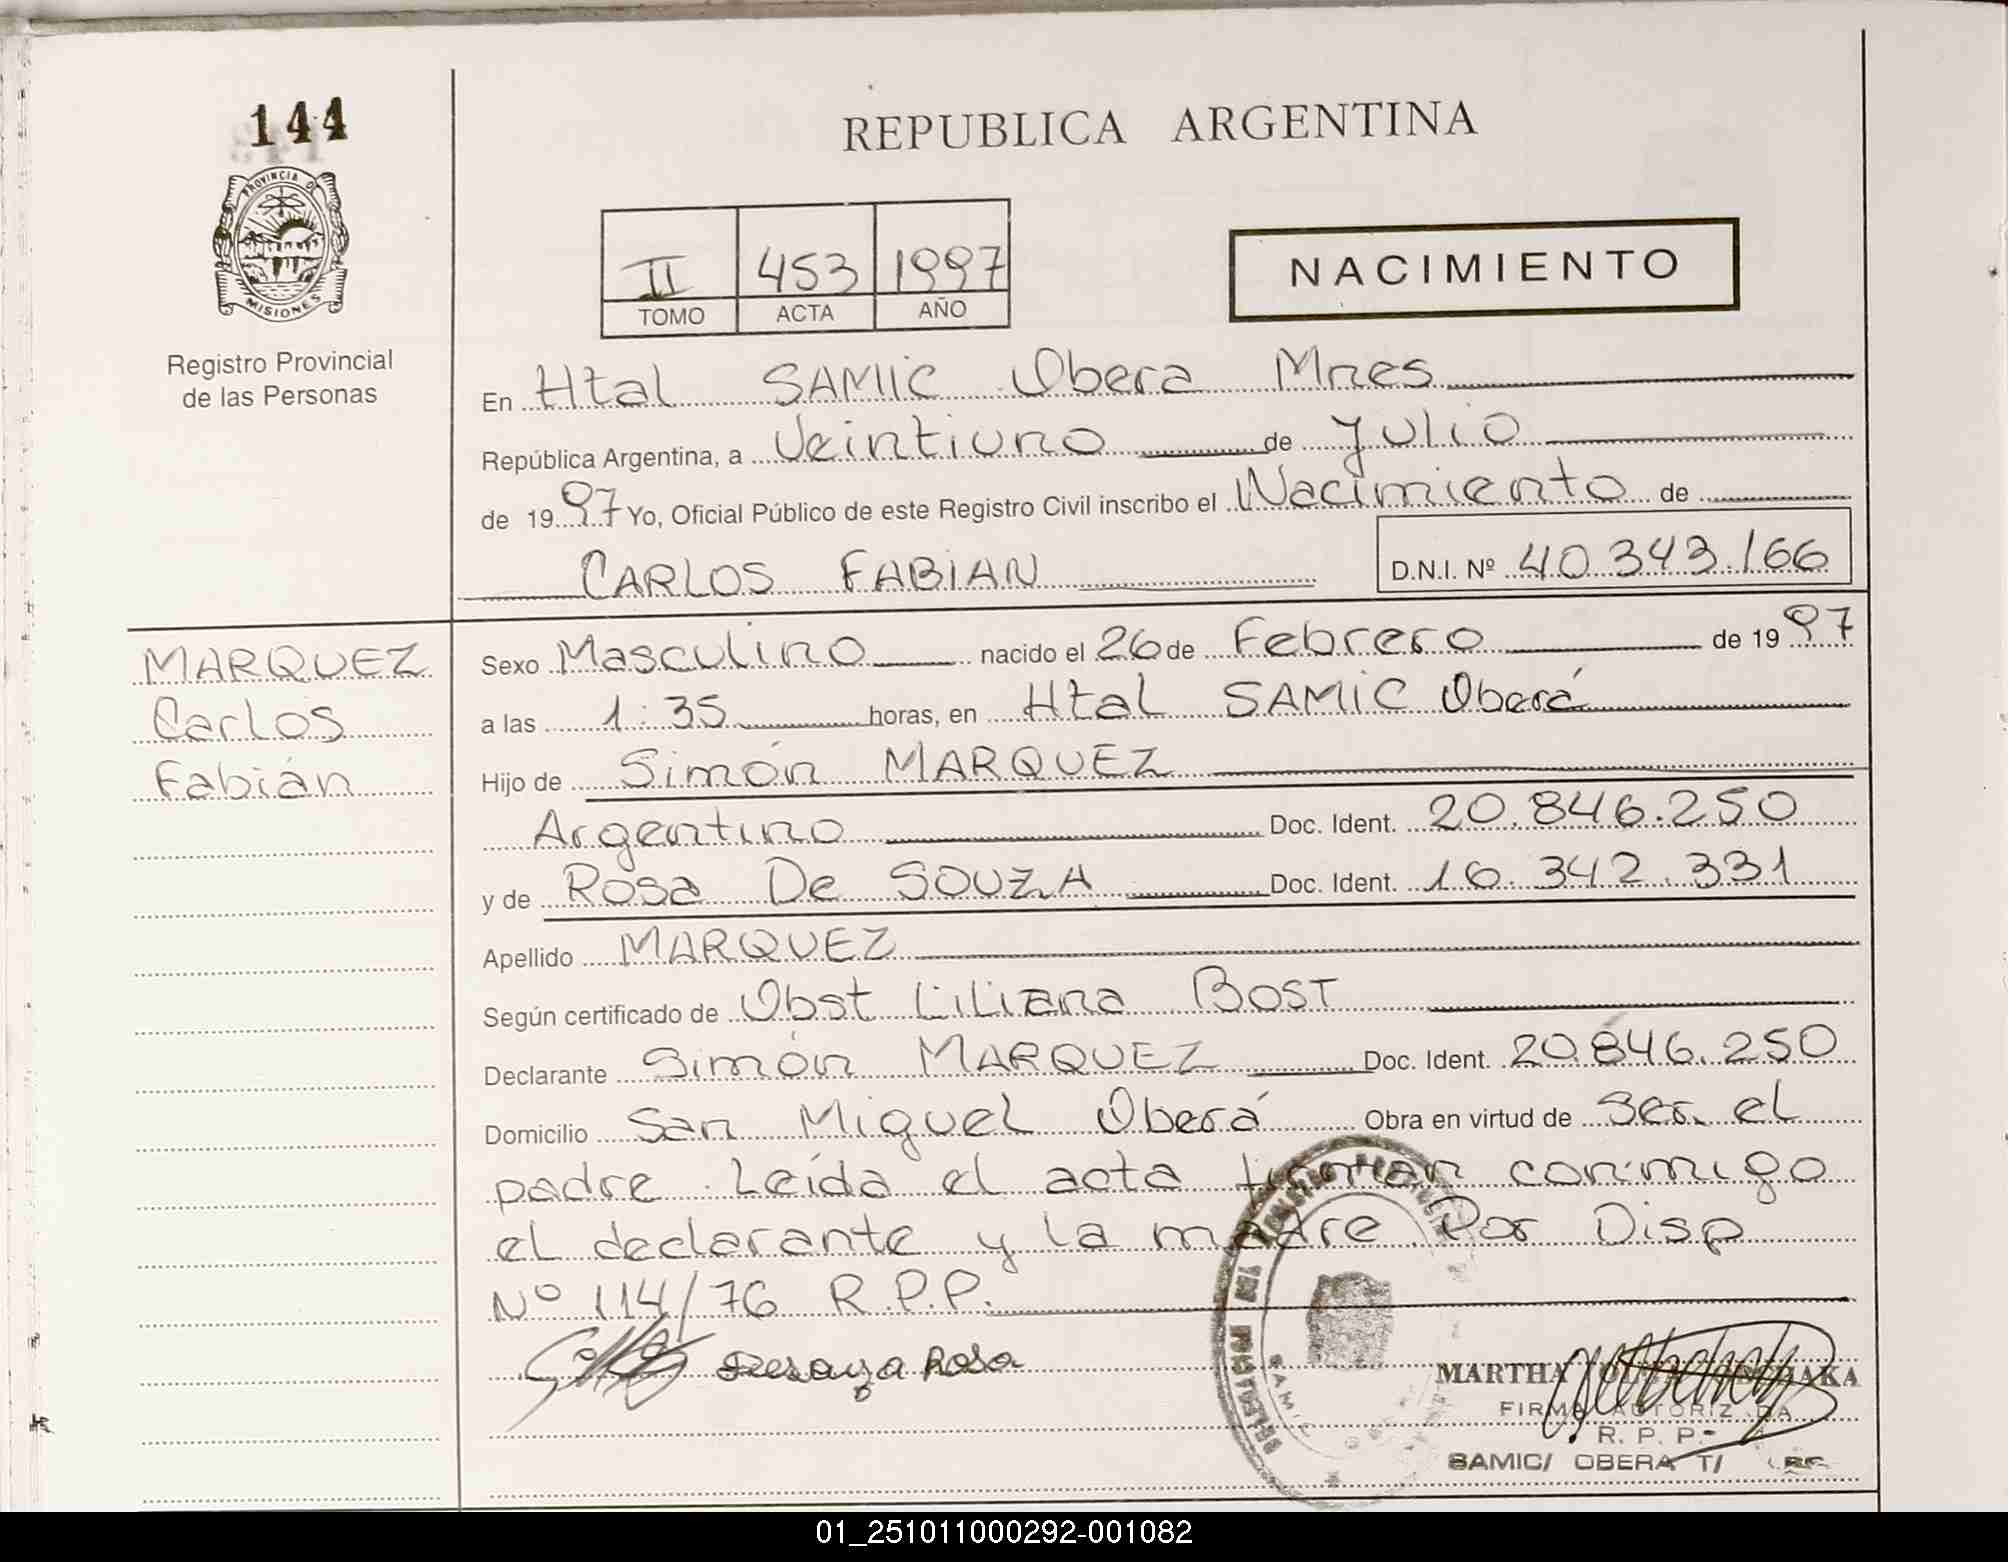 144
PROVINCIA DE
MISIONES
Registro Provincial
de las Personas
REPUBLICA ARGENTINA
II 453 1997
TOMO ACTA AÑO
NACIMIENTO
En Htal SAMIC Obera Mnes
República Argentina, a Veintiuno de Julio
de 1997 Yo, Oficial Público de este Registro Civil inscribo el Nacimiento de
CARLOS FABIAN D.N.I. Nº 40.343.166
MARQUEZ
Carlos
Fabián
Sexo Masculino nacido el 26 de Febrero de 1997
a las 1:35 horas, en Htal SAMIC Oberá
Hijo de Simón MARQUEZ
Argentino Doc. Ident. 20.846.250
y de Rosa De SOUZA Doc. Ident. 16.342.331
Apellido MARQUEZ
Según certificado de Obst Liliana BOST
Declarante Simón MARQUEZ Doc. Ident. 20.846.250
Domicilio San Miguel Oberá Obra en virtud de Ser el
padre. Leída el acta firman conmigo
el declarante y la madre Por Disp
Nº 114/76 R.P.P.
Rosa
MARTHA
FIRMA AUTORIZADA
R. P. P.
SAMIC/ OBERA T/
SAMIC
01_251011000292-001082